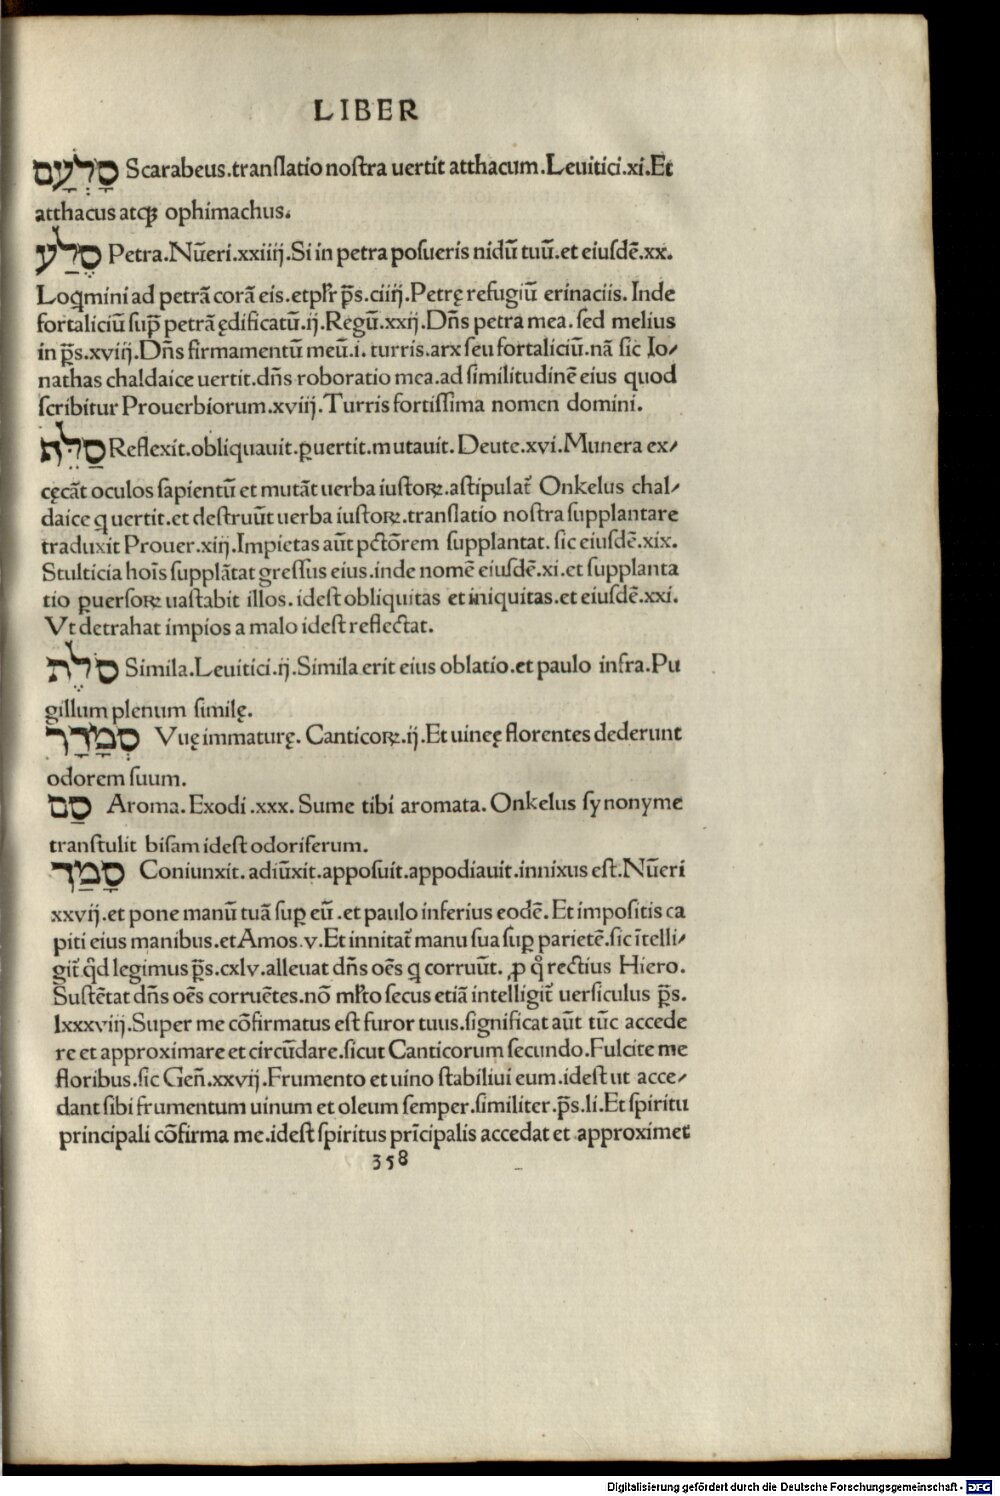 LIBER
סָלְעָם Scarabeus.translatio nostra uertit atthacum.Leuitici.xi.Et
atthacus atq̃ ophimachus.
סֶלַע Petra.Nũeri.xxiiij.Si in petra posueris nidũ tuũ.et eiusdẽ.xx.
Loq̃mini ad petrã corã eis.et pl̃r p̃s.ciiij.Petrę refugiũ erinaciis. Inde
fortaliciũ sup̃ petrã ędificatũ.ij.Regũ.xxij.Dñs petra mea.sed melius
in p̃s.xviij.Dñs firmamentũ meũ.i. turris.arx seu fortaliciũ.nã sic Io⸗
nathas chaldaice uertit.dñs roboratio mea.ad similitudinẽ eius quod
scribitur Prouerbiorum.xviij.Turris fortissima nomen domini.
סַלֵּף Reflexit.obliquauit.ꝑuertit.mutauit.Deute.xvi.Munera ex⸗
cęcãt oculos sapientũ et mutãt uerba iustoꝝ.astipulat̃ Onkelus chal⸗
daice q uertit.et destruũt uerba iustoꝝ.translatio nostra supplantare
traduxit Prouer.xiij.Impietas aũt pctõrem supplantat. sic eiusdẽ.xix.
Stulticia hoĩs supplãtat gressus eius.inde nomẽ eiusdẽ.xi.et supplanta
tio ꝑuersoꝝ uastabit illos.idest obliquitas et iniquitas.et eiusdẽ.xxi.
Vt detrahat impios a malo idest reflectat.
סֹלֶת Simila.Leuitici.ij.Simila erit eius oblatio.et paulo infra.Pu
gillum plenum similę.
סְמָדַר Vuę immaturę. Canticoꝝ.ij.Et uineę florentes dederunt
odorem suum.
סַם Aroma.Exodi.xxx.Sume tibi aromata.Onkelus synonyme
transtulit bisam idest odoriferum.
סָמַך Coniunxit.adiũxit.apposuit.appodiauit.innixus est.Nũeri
xxvij.et pone manũ tuã suꝑ eũ.et paulo inferius eodẽ.Et impositis ca
piti eius manibus.et Amos.v.Et innitat̃ manu sua suꝑ parietẽ.sic ĩtelli⸗
git̃ q̃d legimus p̃s.cxlv.alleuat dñs oẽs q corruũt. ꝓ q̃ rectius Hiero.
Sustẽtat dñs oẽs corruẽtes.nõ ml̃to secus etiã intelligit̃ uersiculus p̃s.
lxxxviij.Super me cõfirmatus est furor tuus.significat aũt tũc accede
re et approximare et circũdare.sicut Canticorum secundo.Fulcite me
floribus.sic Geñ.xxvij.Frumento et uino stabiliui eum.idest ut acce⸗
dant sibi frumentum uinum et oleum semper.similiter.p̃s.li.Et spiritu
principali cõfirma me.idest spiritus prĩcipalis accedat et approximet
358
Digitalisierung gefördert durch die Deutsche Forschungsgemeinschaft - DFG